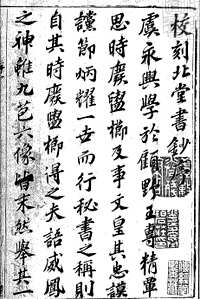 校刻北堂書鈔序
虞永興學於顧野王專精單
思時廢盥櫛及事文皇其忠謨
讜節炳耀一世而行秘書之稱則
自其時廢盥櫛得之夫語威鳳
之神雖九苞六像皆未然舉其一